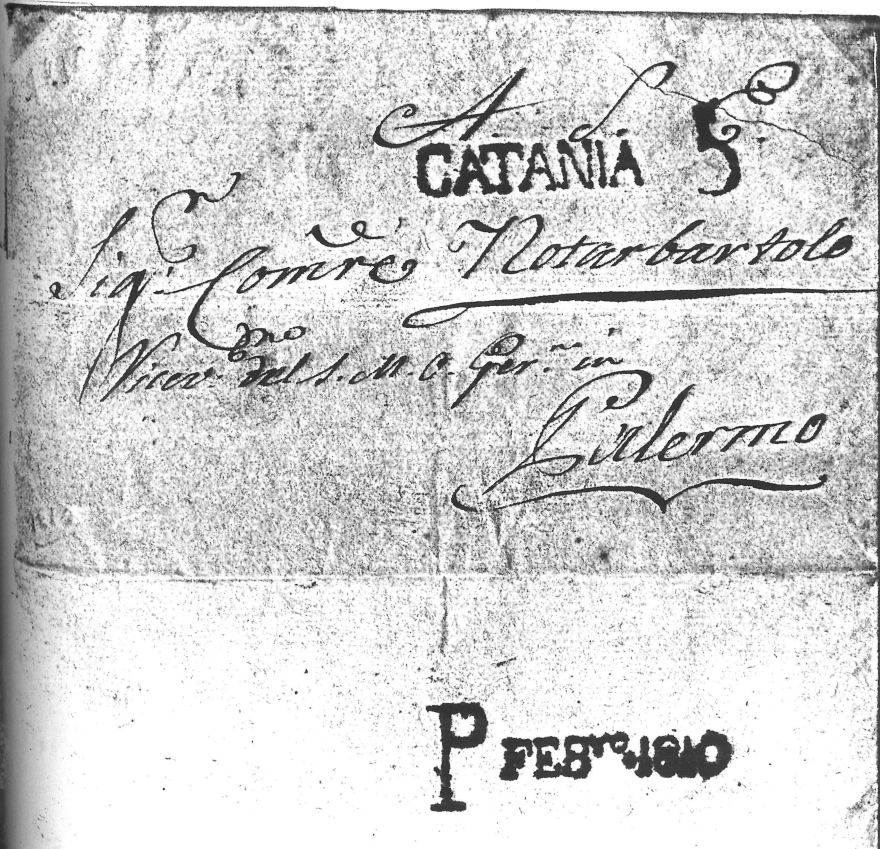 A S. E.
CATANIA 5
Sigr. Comre Notarbartolo
Vicev. del S. M. O. Ger. in
Palermo
P FEBro. 1810